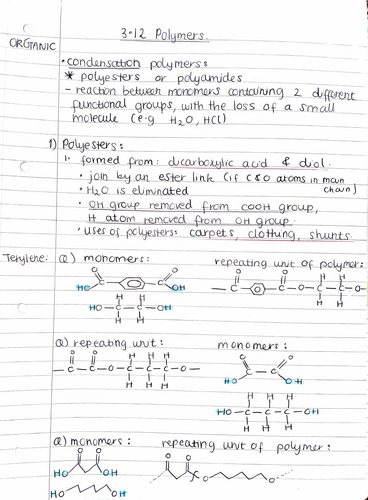 3.12 Polymers.
ORGANIC
• condensation polymers:
* polyesters or polyamides
- reaction between monomers containing 2 different
functional groups, with the loss of a small
molecule (e.g H₂O, HCl)
1) Polyesters:
1. formed from: dicarboxylic acid & diol.
• join by an ester link (if C & O atoms in main
chain)
• H₂O is eliminated
• OH group removed from COOH group,
H atom removed from OH group.
• uses of polyesters: carpets, clothing, shunts.
Terylene: Q) monomers: repeating unit of polymer:
O O O O H H
HO OH — C C — O — C — C — O —
H H H H
HO — C — C — OH
H H
Q) repeating unit: monomers:
O O H H H O O
— C — C — O — C — C — C — O — C — C
H H H HO OH
H H H
HO — C — C — C — OH
H H H
Q) monomers: repeating unit of polymer:
O O O O
HO OH O O
HO OH